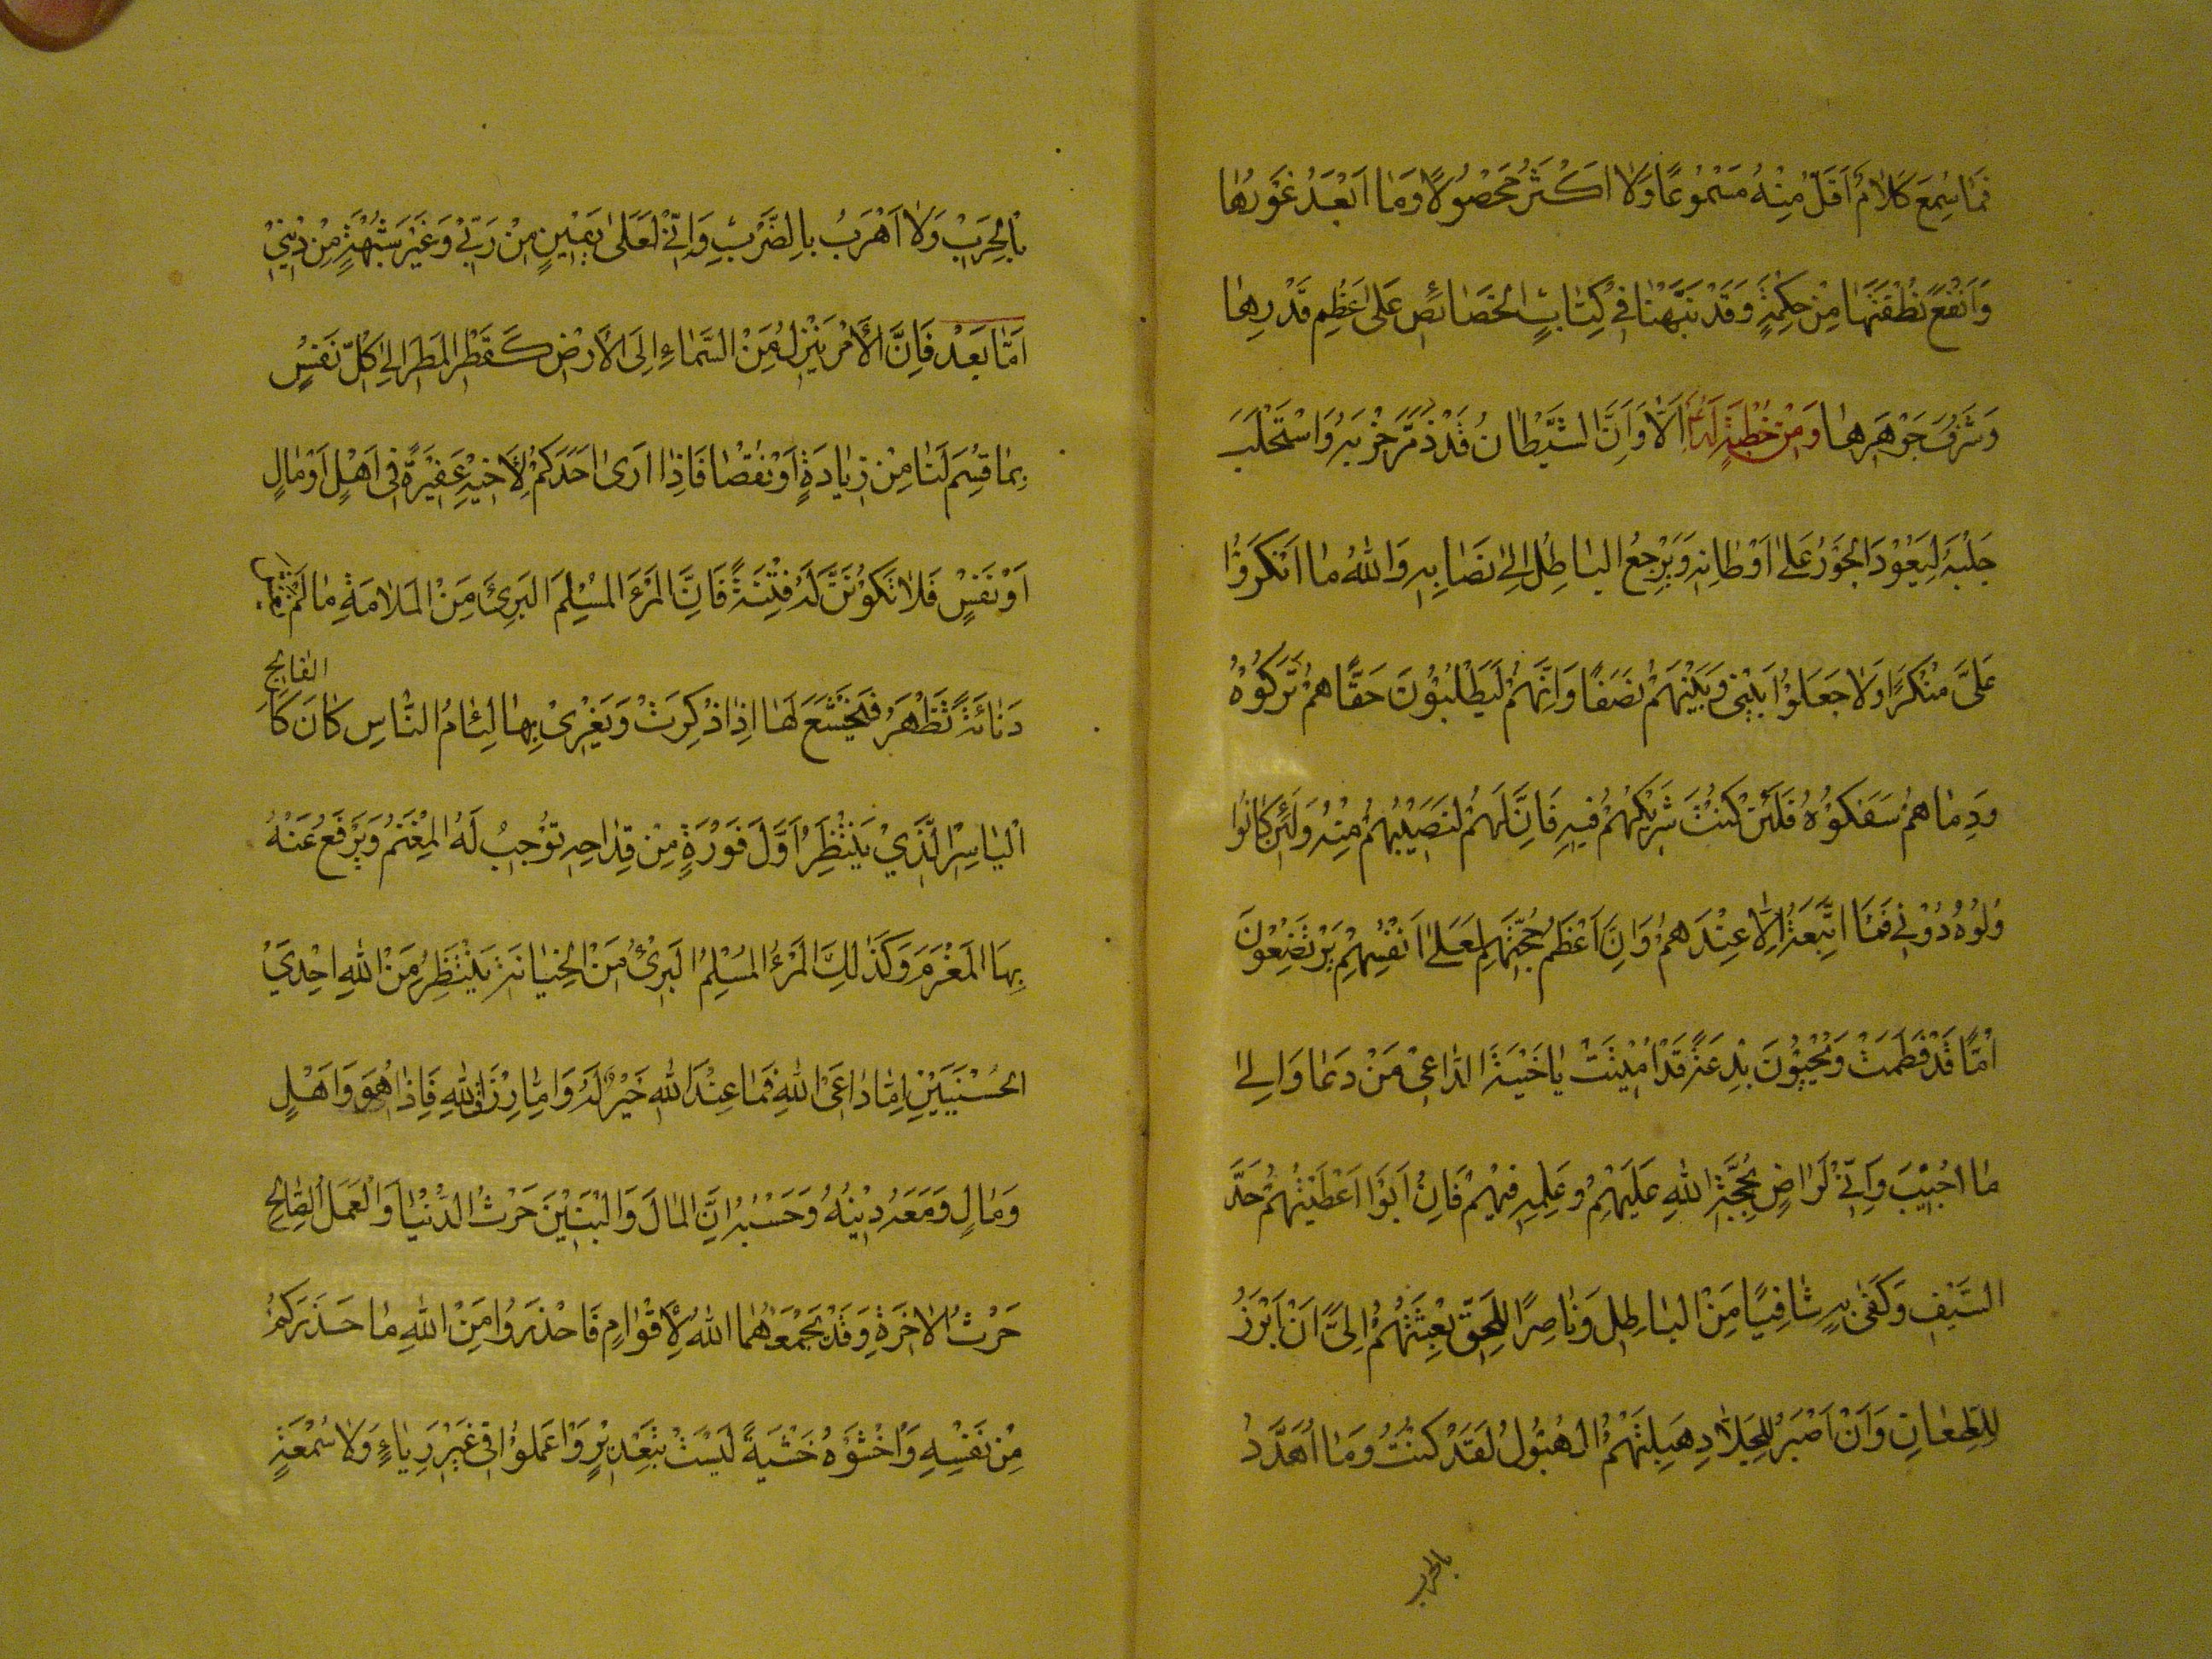 فَمَا سُمِعَ كَلَامٌ اَقَلُّ مِنْهُ مَسْمُوعًا وَلَا اَكْثَرُ مَحْصُولًا وَمَا اَبْعَدَ غَوْرُهَا
وَاَنْفَعَ نُطْفَتَهَا مِنْ حِكْمَةٍ وَقَدْ نَبَّهْنَا فِي كِتَابِ الْخَصَائِصِ عَلَى عِظَمِ قَدْرِهَا
وَشَرَفِ جَوْهَرِهَا وَمِنْ خُطْبَةٍ لَهُ اَلَا وَاِنَّ الشَّيْطَانَ قَدْ ذَمَّرَ حِزْبَهُ وَاسْتَجْلَبَ
جَلَبَهُ لِيَعُوْدَ الْجَوْرُ عَلَى اَوْطَانِهِ وَيَرْجِعُ الْبَاطِلُ اِلَى نِصَابِهِ وَاللهُ مَا اَنْكَرُوْا
عَلَيَّ مُنْكَرًا وَلَا جَعَلُوْا بَيْنِيْ وَبَيْنَهُمْ نَصَفًا وَاِنَّهُمْ لَيَطْلُبُوْنَ حَقًّا هُمْ تَرَكُوْهُ
وَدِمَاهُمْ سَفَكُوْهُ فَلَئِنْ كُنْتُ شَرِيْكَهُمْ فِيْهِ فَاِنَّ لَهُمْ لَنَصِيْبَهُمْ مِنْهُ وَلَئِنْ كَانُوْا
وَلُوْهُ دُوْنِيْ فَمَا التَّبِعَةُ اِلَّا عِنْدَهُمْ وَاِنَّ اَعْظَمَ حُجَّتِهِمْ لَعَلَى اَنْفُسِهِمْ يَرْتَضِعُوْنَ
اُمًّا قَدْ فَطَمَتْ وَيُحْيُوْنَ بِدْعَةً قَدْ اُمِيْتَتْ يَا خَيْبَةَ الدَّاعِيْ مَنْ دَعَا وَاِلَى
مَا اُجِيْبَ وَاِنِّيْ لَرَاضٍ بِحُجَّةِ اللهِ عَلَيْهِمْ وَعِلْمِهِ فِيْهِمْ فَاِنْ اَبَوْا اَعْطَيْتُهُمْ حَدَّ
السَّيْفِ وَكَفَى بِهِ شَافِيًا مِنَ الْبَاطِلِ وَنَاصِرًا لِلْحَقِّ بَعْثَتُهُمْ اِلَيَّ اَنْ اَبْرُزُ
لِلطِّعَانِ وَاَنْ اَصْبِرُ لِلْجِلَادِ هَبِلَتْهُمُ الْهَبُوْلُ لَقَدْ كُنْتُ وَمَا اُهَدَّدُ
بالحرب
بِالْحَرْبِ وَلَا اَهْرَبُ بِالضَّرْبِ وَاِنِّيْ لَعَلَى يَقِيْنٍ مِنْ رَبِّيْ وَغَيْرِ شُبْهَةٍ مِنْ دِيْنِيْ
اَمَّا بَعْدُ فَاِنَّ الْاَمْرَ يَنْزِلُ مِنَ السَّمَاءِ اِلَى الْاَرْضِ كَقَطْرِ الْمَطَرِ اِلَى كُلِّ نَفْسٍ
بِمَا قُسِمَ لَنَا مِنْ زِيَادَةٍ اَوْ نُقْصَا فَاِذَا ارَى اَحَدُكُمْ لِاَخِيْهِ عَفِيْرَةً فِي اَهْلٍ اَوْ مَالٍ
اَوْ نَفْسٍ فَلَا تَكُوْنَنَّ لَهُ فِتْنَةً فَاِنَّ الْمَرْءَ الْمُسْلِمَ الْبَرِئَ مِنَ الْمَلَامَةِ مَا لَمْ يَغْشَ
دَنَائَةً تَظْهَرُ فَيَخْشَعَ لَهَا اِذَا ذُكِرَتْ وَيُغْرِيْ بِهَا لِئَامُ النَّاسِ كَانَ كَا
الفالج
الْيَاسِرِ الَّذِيْ يَنْتَظِرُ اَوَّلَ فَوْرَةٍ مِنْ قِدَاحِهِ تُوْجِبُ لَهُ الْمَغْنَمُ وَيَرْفَعُ عَنْهُ
بِهَا الْمَغْرَمَ وَكَذٰلِكَ الْمَرْءُ الْمُسْلِمُ الْبَرِئُ مِنَ الْخِيَانَةِ يَنْتَظِرُ مِنَ اللهِ اِحْدَيْ
الْحُسْنَيَيْنِ اِمَّا دَاعِيَ اللهِ فَمَا عِنْدَ اللهِ خَيْرٌ لَهُ وَاِمَّا رِزْقَ اللهِ فَاِذَا هُوَ وَاَهْلٍ
وَمَالٍ وَمَعَهُ دِيْنُهُ وَحَسَبُهُ اِنَّ الْمَالَ وَالْبَنِيْنَ حَرْثُ الدُّنْيَا وَالْعَمَلَ الصَّالِحَ
حَرْثُ الْاٰخِرَةِ وَقَدْ يَجْمَعُهُمَا اللهُ لِاَقْوَامٍ فَاحْذَرُوْا مِنَ اللهِ مَا حَذَّرَكُمْ
مِنْ نَفْسِهِ وَاخْشَوْهُ خَشْيَةً لَيْسَتْ بِتَعْذِيْرٍ وَاعْمَلُوْا فِي غَيْرِ رِيَاءٍ وَلَا سُمْعَةٍ